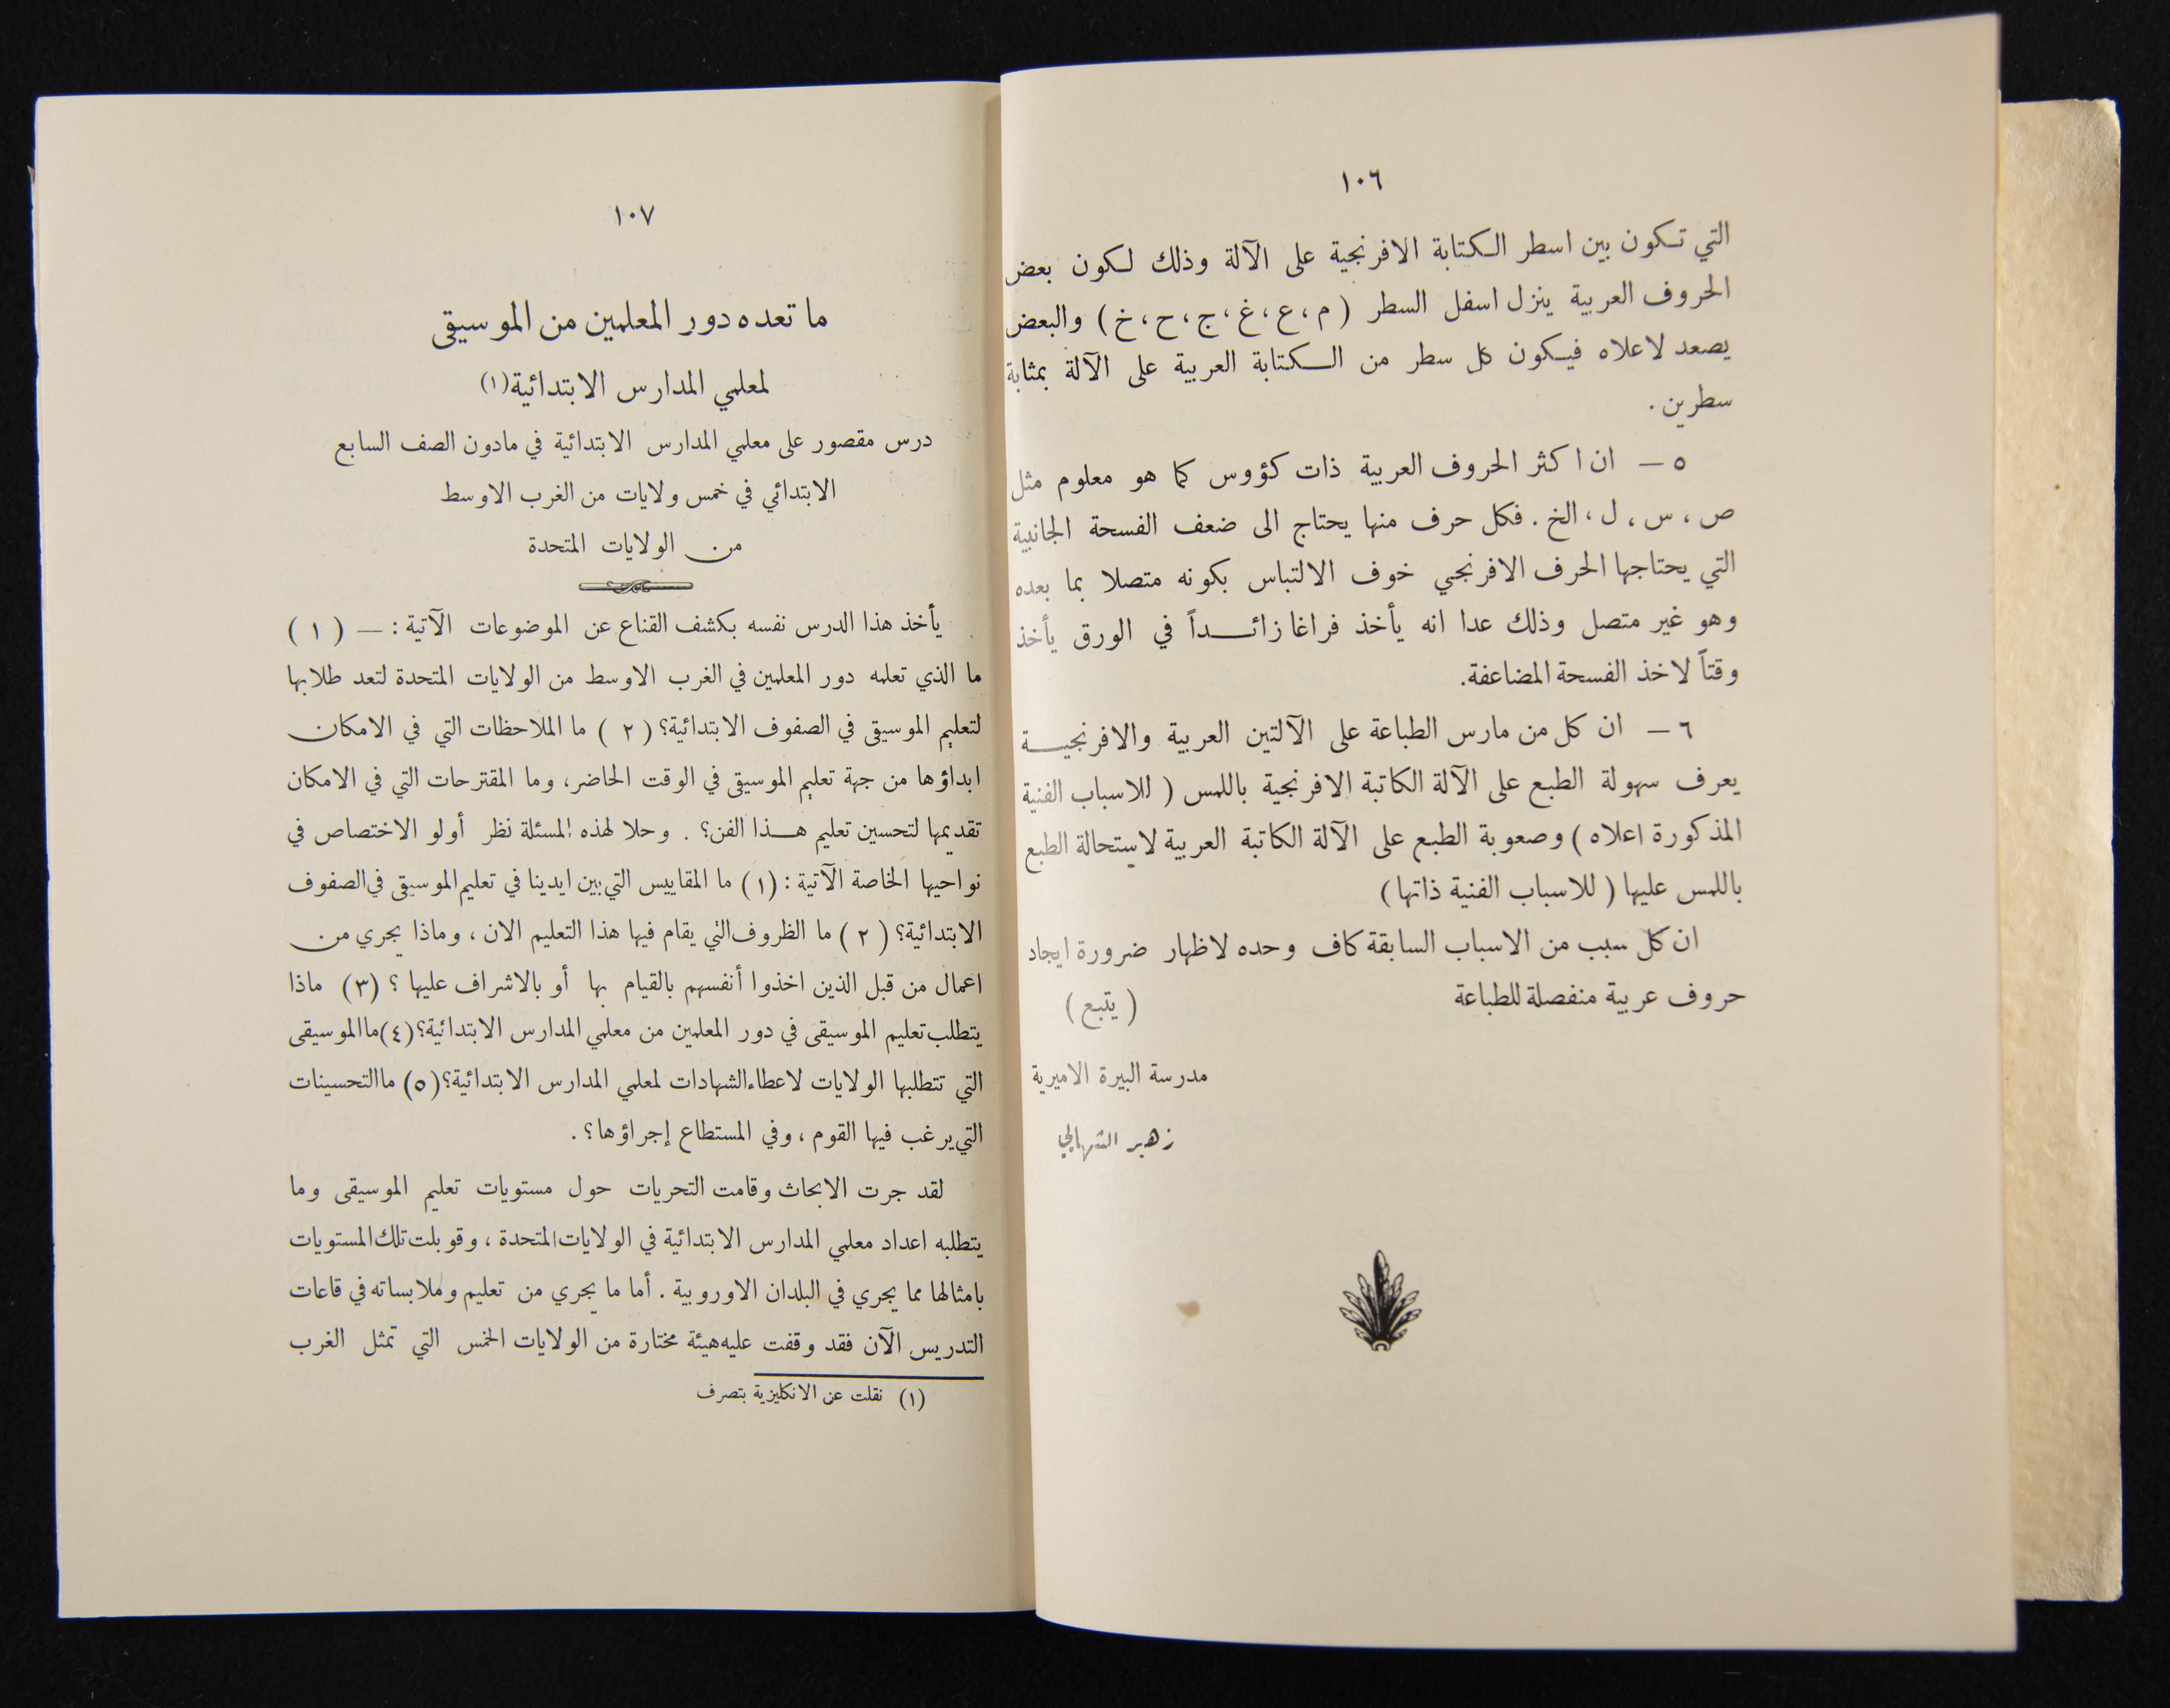 ١٠٦
التي تكون بين اسطر الكتابة الافرنجية على الآلة وذلك لكون بعض
الحروف العربية ينزل اسفل السطر ( م ، ع ، غ ، ج ، ح ، خ ) والبعض
يصعد لاعلاه فيكون كل سطر من الكتابة العربية على الآلة بمثابة
سطرين .
٥ — ان اكثر الحروف العربية ذات كؤوس كما هو معلوم مثل
ص ، س ، ل ، الخ . فكل حرف منها يحتاج الى ضعف الفسحة الجانبية
التي يحتاجها الحرف الافرنجي خوف الالتباس بكونه متصلا بما بعده
وهو غير متصل وذلك عدا انه يأخذ فراغا زائداً في الورق يأخذ
وقتاً لاخذ الفسحة المضاعفة.
٦ — ان كل من مارس الطباعة على الآلتين العربية والافرنجية
يعرف سهولة الطبع على الآلة الكاتبة الافرنجية باللمس ( للاسباب الفنية
المذكورة اعلاه ) وصعوبة الطبع على الآلة الكاتبة العربية لاستحالة الطبع
باللمس عليها ( للاسباب الفنية ذاتها )
ان كل سبب من الاسباب السابقة كاف وحده لاظهار ضرورة ايجاد
حروف عربية منفصلة للطباعة ( يتبع )
مدرسة البيرة الاميرية
زهير الشهابي
١٠٧
ما تعده دور المعلمين من الموسيقى
لمعلمي المدارس الابتدائية(١)
درس مقصور على معلمي المدارس الابتدائية في مادون الصف السابع
الابتدائي في خمس ولايات من الغرب الاوسط
من الولايات المتحدة
يأخذ هذا الدرس نفسه بكشف القناع عن الموضوعات الآتية : — ( ١ )
ما الذي تعلمه دور المعلمين في الغرب الاوسط من الولايات المتحدة لتعد طلابها
لتعليم الموسيقى في الصفوف الابتدائية؟ ( ٢ ) ما الملاحظات التي في الامكان
ابداؤها من جهة تعليم الموسيقى في الوقت الحاضر، وما المقترحات التي في الامكان
تقديمها لتحسين تعليم هذا الفن؟ . وحلا لهذه المسئلة نظر أولو الاختصاص في
نواحيها الخاصة الآتية : (١) ما المقاييس التي بين ايدينا في تعليم الموسيقى في الصفوف
الابتدائية؟ ( ٢ ) ما الظروف التي يقام فيها هذا التعليم الان ، وماذا يجري من
اعمال من قبل الذين اخذوا أنفسهم بالقيام بها أو بالاشراف عليها ؟ (٣) ماذا
يتطلب تعليم الموسيقى في دور المعلمين من معلمي المدارس الابتدائية؟ (٤) ما الموسيقى
التي تتطلبها الولايات لاعطاء الشهادات لمعلمي المدارس الابتدائية؟ (٥) ما التحسينات
التي يرغب فيها القوم ، وفي المستطاع إجراؤها ؟ .
لقد جرت الابحاث وقامت التحريات حول مستويات تعليم الموسيقى وما
يتطلبه اعداد معلمي المدارس الابتدائية في الولايات المتحدة ، وقوبلت تلك المستويات
بامثالها مما يجري في البلدان الاوروبية . أما ما يجري من تعليم وملابساته في قاعات
التدريس الآن فقد وقفت عليه هيئة مختارة من الولايات الخمس التي تمثل الغرب
(١) نقلت عن الانكليزية بتصرف